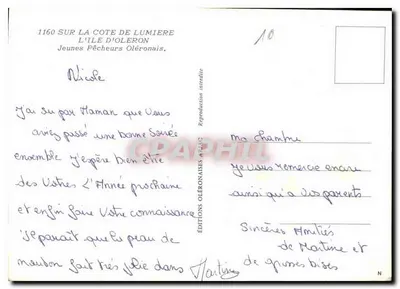 1160 SUR LA COTE DE LUMIERE
L'ILE D'OLERON
Jeunes Pêcheurs Oléronais.
10
Nicole
J'ai su par Maman que Vous
aviez passé une bonne Soirée
ensemble j'espère bien être
des Votres l'Année prochaine
et enfin faire Votre connaissance
il parait que la peau de
mouton fait très jolie dans
ma chambre
je vous remercie encore
ainsi qu'a vos parents
Sincères Amitiés
de Martine et
de grosses bises
Martine
EDITIONS OLERONAISES
Reproduction interdite
CPAPHIL
N